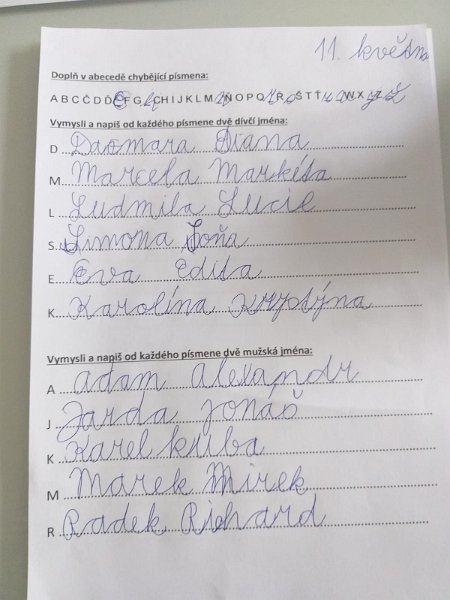 11. května
Doplň v abecedě chybějící písmena:
A B C Č D Ď E F G H CH I J K L M N Ň O P Q R Ř S Š T Ť U V W X Y Z
Vymysli a napiš od každého písmene dvě dívčí jména:
D Dagmara Diana
M Marcela Markéta
L Ludmila Lucie
S Simona Soňa
E Eva Edita
K Karolína Krystýna
Vymysli a napiš od každého písmene dvě mužská jména:
A Adam Alexandr
J Jarda Jonáš
K Karel kuba
M Marek Mirek
R Radek Richard